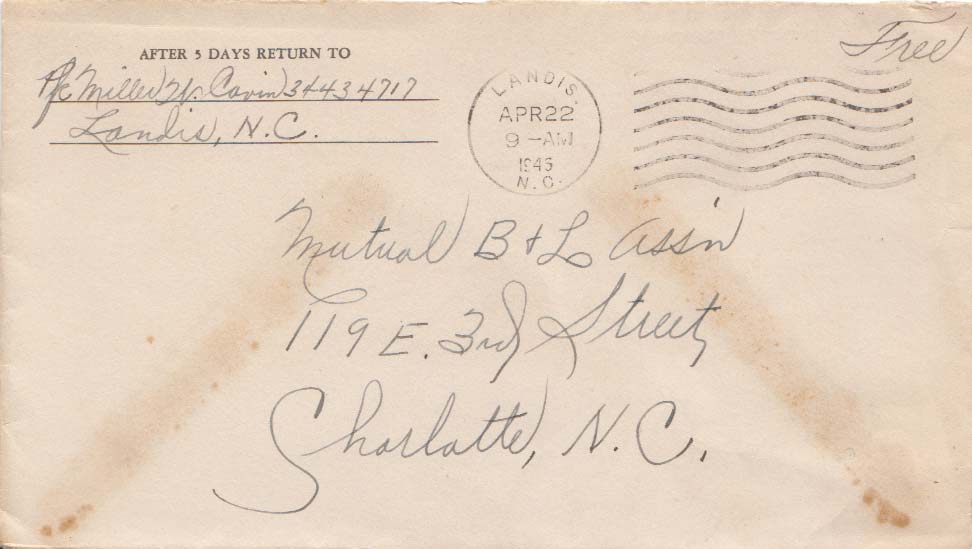 AFTER 5 DAYS RETURN TO
Pfc Miller W. Cavin 34434717
Landis, N.C.
LANDIS.
APR 22
9 - AM
1945
N.C.
Free
Mutual B + L Ass'n
119 E. 3rd Street
Charlotte, N.C.